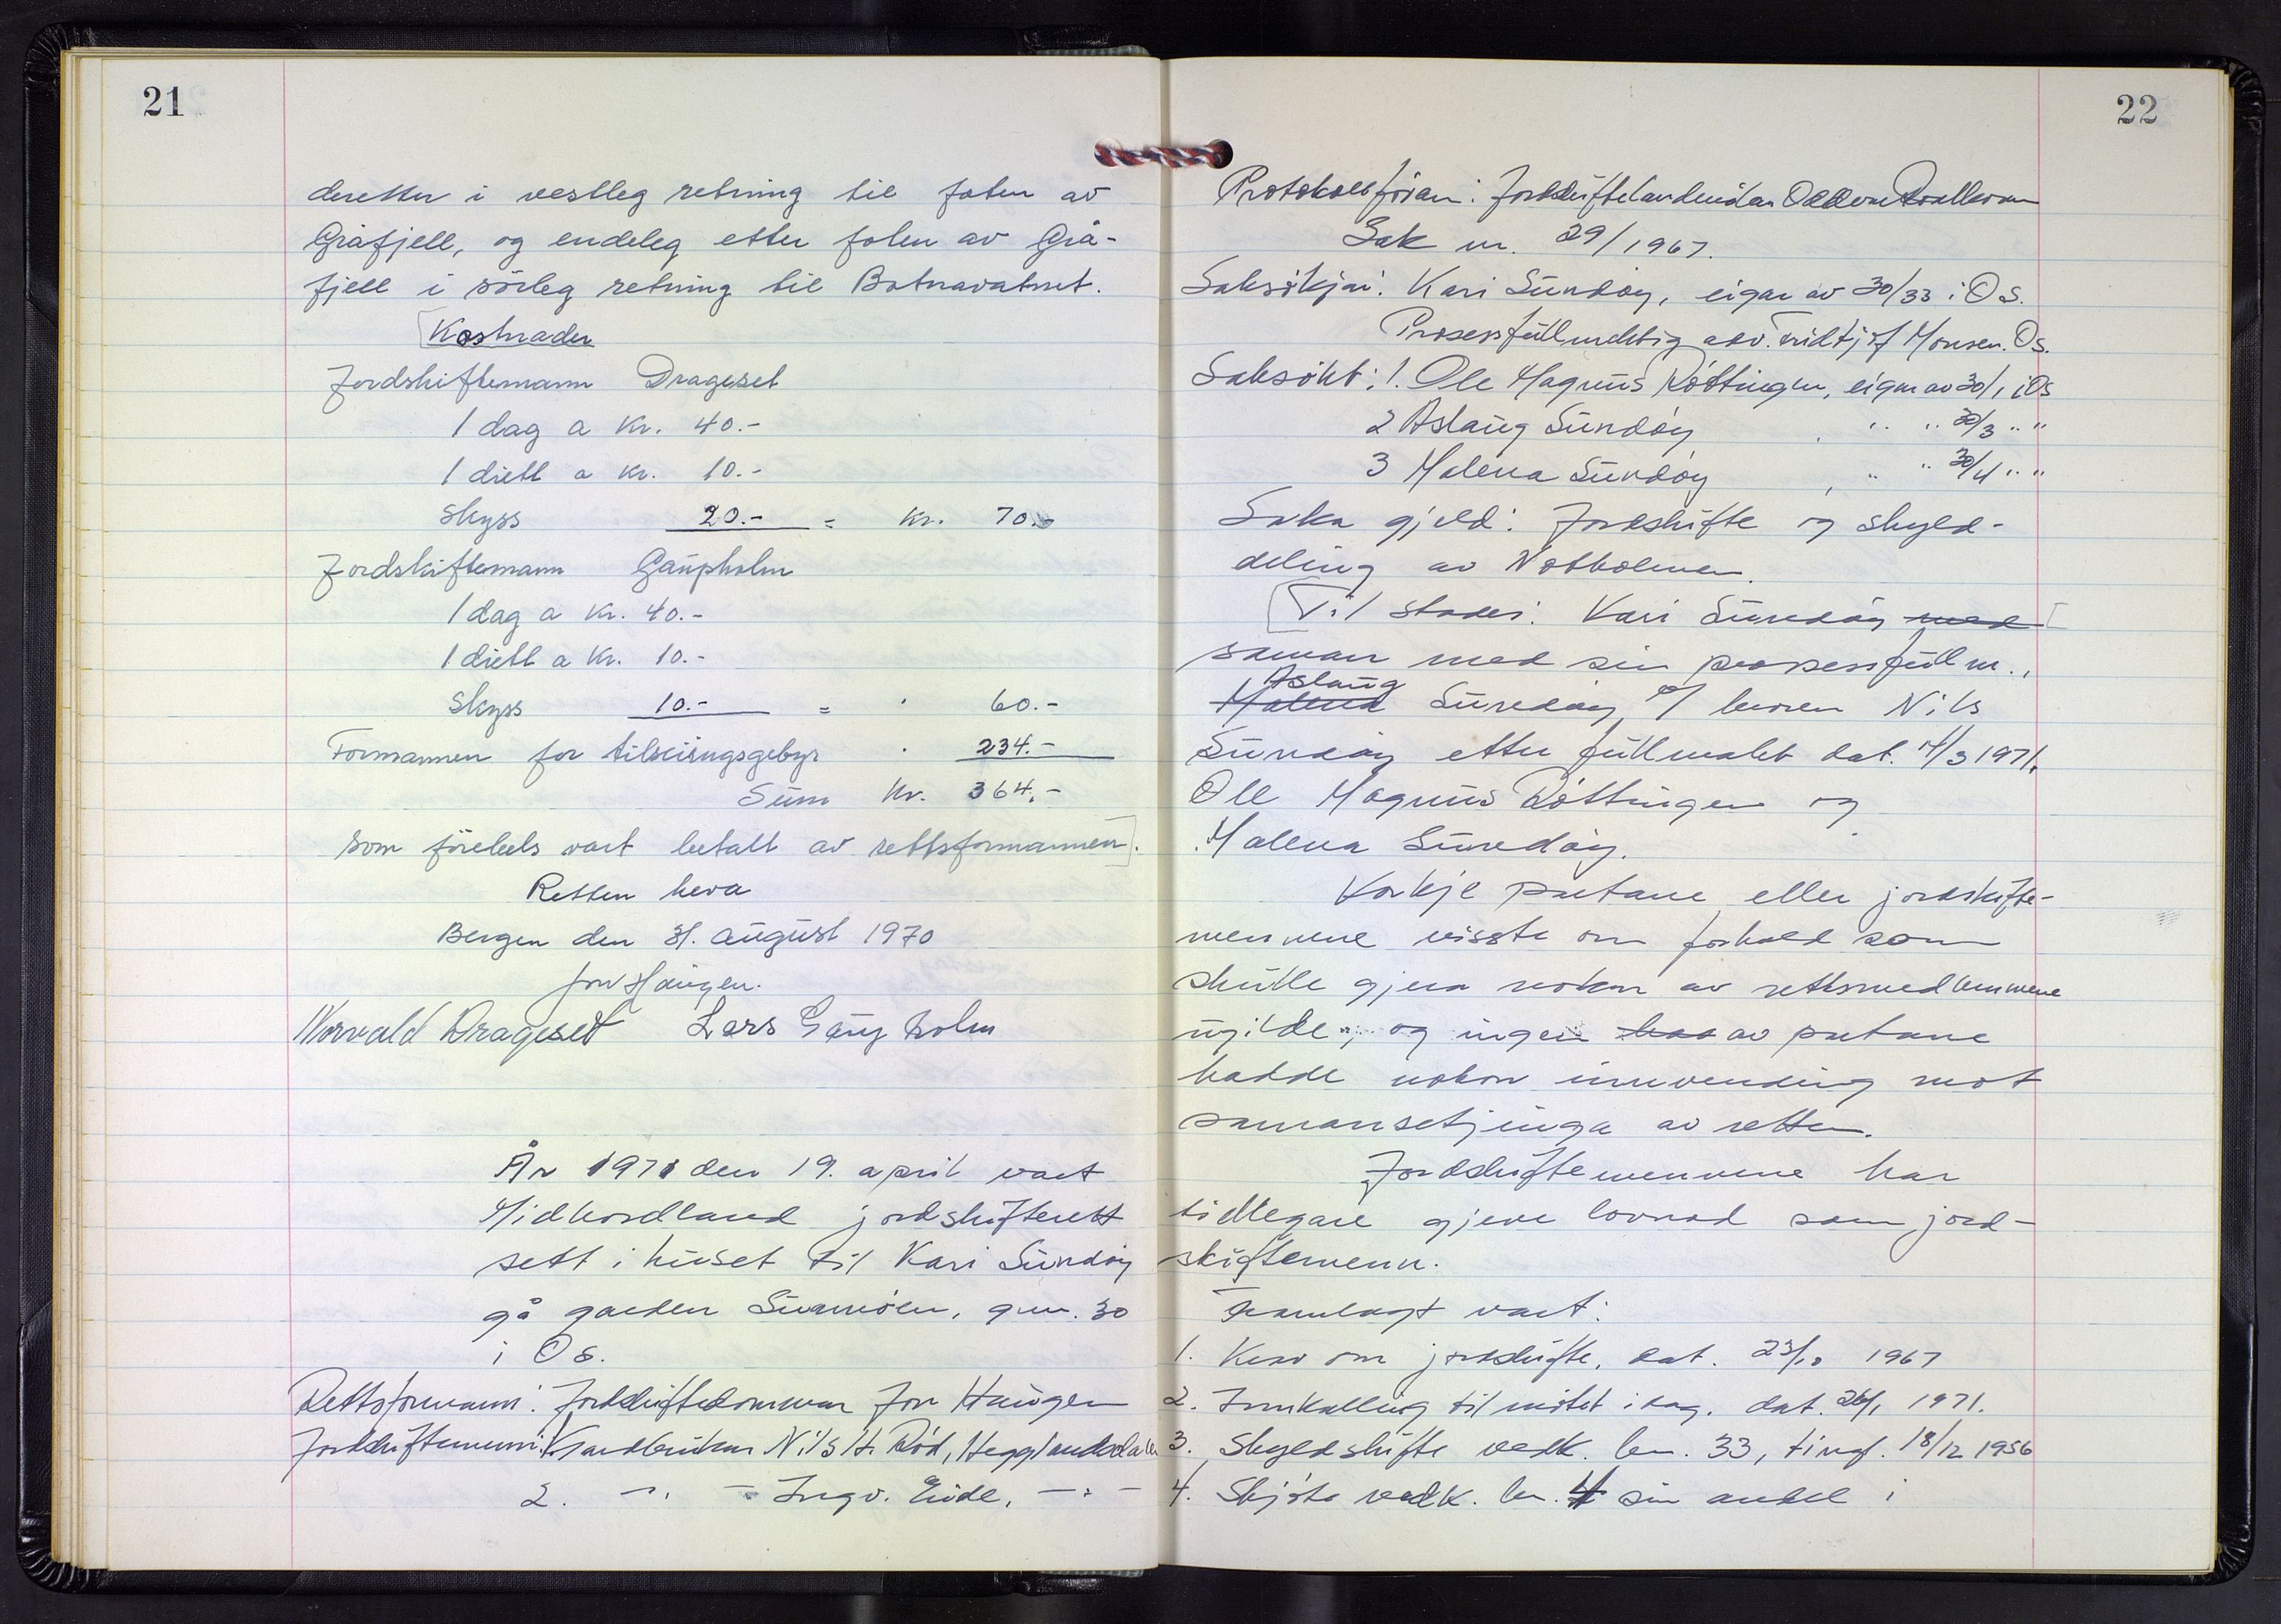 21
deretter i vestleg retning til foten av
Gråfjell, og endeleg etter foten av Grå-
fjell i sörleg retning til Botnavatnet.
[Kostnader
Jordskiftemann Drageset
1 dag a kr. 40.-
1 diett a kr. 10.-
Skyss 20.- = kr. 70.-
Jordskiftemann Gaupholm
1 dag a kr. 40.-
1 diett a kr. 10.-
Skyss 10.- = " 60.-
Formannen for tilvisingsgebyr " 234.-
Sum kr. 364.-
som förebels vart betalt av rettsformannen].
Retten heva
Bergen den 31. august 1970
Jon Haugen.
Norvald Drageset Lars Gaupholm
År 1971 den 19. april vart
Midhordland jordskifterett
sett i huset til Kari Sundöy
på garden Sunnöen, gnr. 30
i Os.
Rettsformann: Jordskiftedommar Jon Haugen
Jordskiftemenn: 1. Gardbrukar Nils H. Röd, Hegglandsdalen
2. -"- - Ingv. Eide, -"-
22
Protokollförar: Jordskiftekandidat Oddvar
Sak nr. 29/1967.
Saksökjar: Kari Sundöy, eigar av 30/33 i Os.
Prosessfullmektig adv. Fridtjof Monsen. Os.
Saksökt: 1. Ole Magnus Röttingen, eigar av 30/1 i Os
2 Aslaug Sundöy , " " 30/3 " "
3 Malena Sundöy , " " 30/4 " "
Saka gjeld: Jordskifte og skyld-
deling av Notholmen.
[Til stades: Kari Sundöy med
saman med sin prosessfullm.,
Malena Aslaug Sundöy v/ broren Nils
Sundöy etter fullmakt dat. 4/3 1971,
Ole Magnus Röttingen og
Malena Sundöy.
Korkje partane eller jordskifte-
mennene visste om forhold som
skulle gjera nokon av rettsmedlemmene
ugilde, og ingen has av partane
hadde nokon innvending mot
samansetjinga av retten.
Jordskiftemennene har
tidlegare gjeve lovnad som jord-
skiftemenn.
Framlagt vart:
1. Krav om jordskifte, dat. 23/10 1967
2. Innkalling til mötet i dag. dat. 26/1 1971.
3. Skyldskifte vedk. bnr. 33, tingl. 18/12 1956
4. Skjöte vedk. bnr. 4 sin andel i